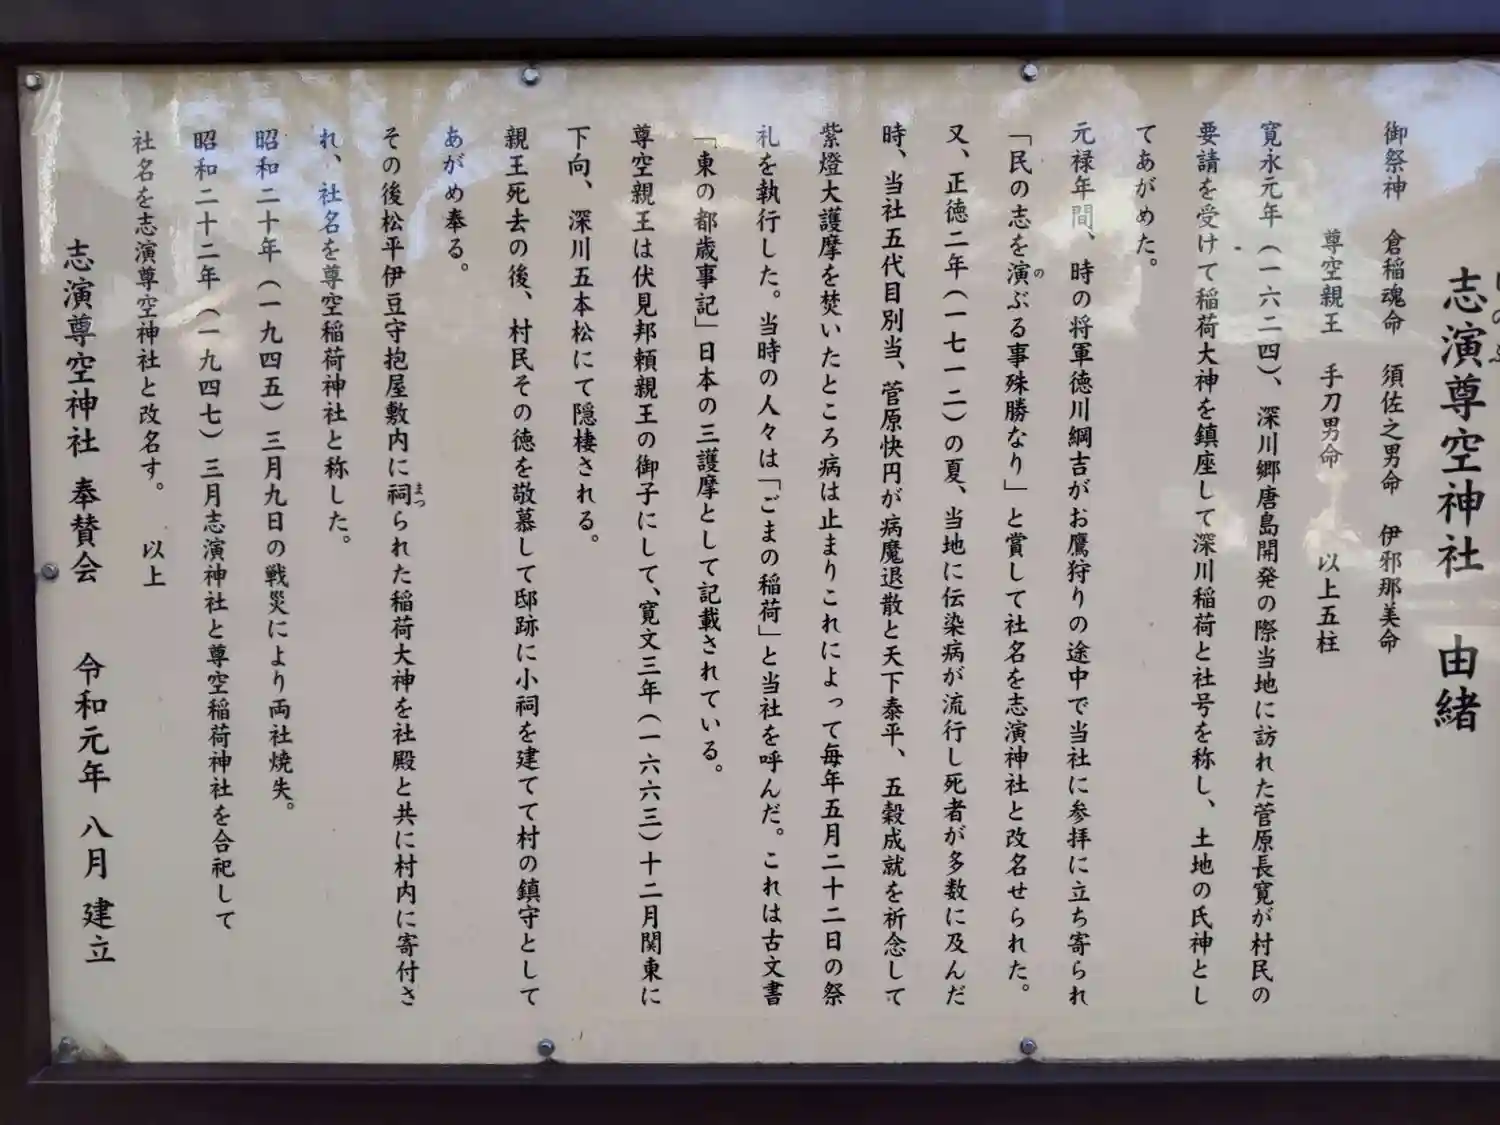 志演尊空神社 由緒
御祭神 倉稲魂命 須佐之男命 伊邪那美命
尊空親王 手刀男命 以上五柱
寛永元年(一六二四)、深川郷唐島開発の際当地に訪れた菅原長寛が村民の
要請を受けて稲荷大神を鎮座して深川稲荷と社号を称し、土地の氏神とし
てあがめた。
元禄年間、時の将軍徳川綱吉がお鷹狩りの途中で当社に参拝に立ち寄られ
「民の志を演ぶる事殊勝なり」と賞して社名を志演神社と改名せられた。
の
又、正徳二年(一七一二)の夏、当地に伝染病が流行し死者が多数に及んだ
時、当社五代目別当、菅原快円が病魔退散と天下泰平、五穀成就を祈念して
紫燈大護摩を焚いたところ病は止まりこれによって毎年五月二十二日の祭
礼を執行した。当時の人々は「ごまの稲荷」と当社を呼んだ。これは古文書
「東の都歳事記」日本の三護摩として記載されている。
尊空親王は伏見邦頼親王の御子にして、寛文三年(一六六三)十二月関東に
下向、深川五本松にて隠棲される。
親王死去の後、村民その徳を敬慕して邸跡に小祠を建てて村の鎮守として
あがめ奉る。
その後松平伊豆守抱屋敷内に祠られた稲荷大神を社殿と共に村内に寄付さ
まつ
れ、社名を尊空稲荷神社と称した。
昭和二十年(一九四五)三月九日の戦災により両社焼失。
昭和二十二年(一九四七)三月志演神社と尊空稲荷神社を合祀して
社名を志演尊空神社と改名す。 以上
志演尊空神社 奉賛会 令和元年 八月 建立